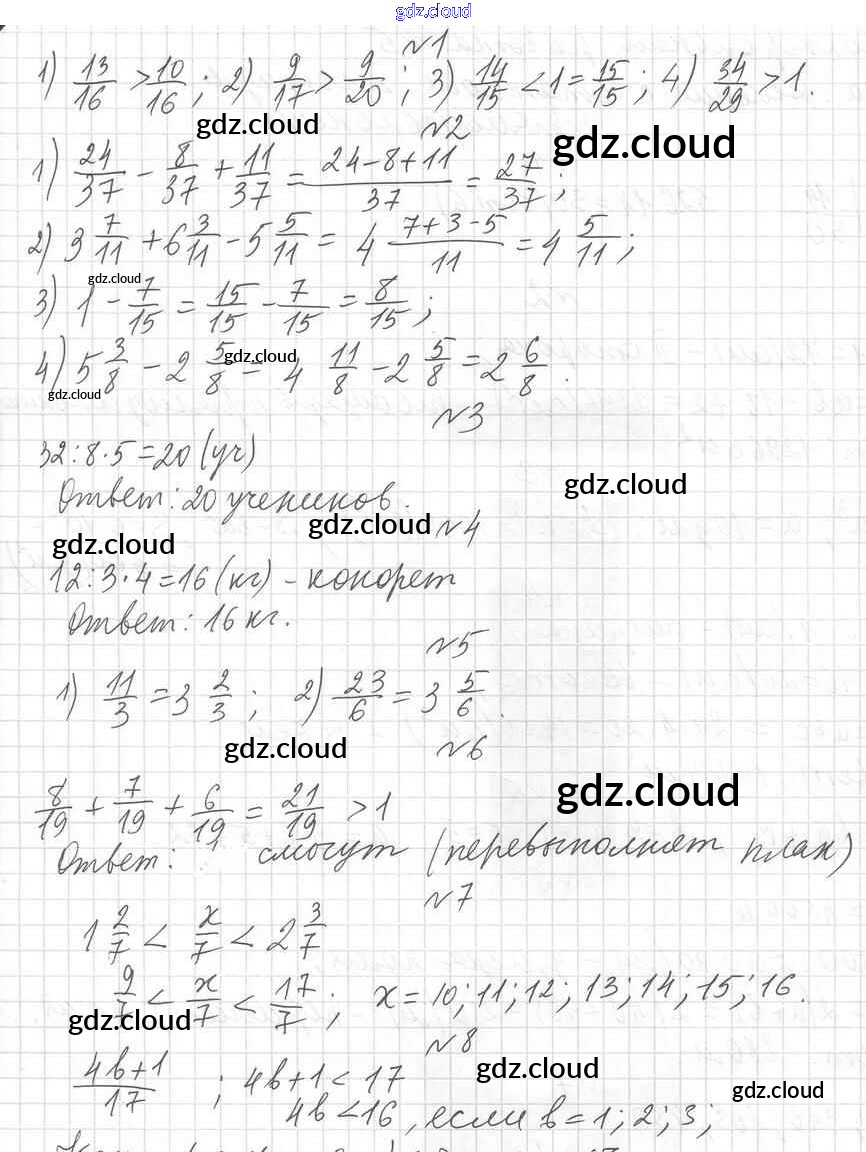 gdz.cloud
№1
1) 13/16 > 10/16; 2) 9/17 > 9/20; 3) 14/15 < 1 = 15/15; 4) 34/29 > 1.
gdz.cloud
gdz.cloud
№2
1) 24/37 - 8/37 + 11/37 = (24-8+11)/37 = 27/37;
2) 3 7/11 + 6 3/11 - 5 5/11 = 4 (7+3-5)/11 = 4 5/11;
gdz.cloud
3) 1 - 7/15 = 15/15 - 7/15 = 8/15;
4) 5 3/8 - 2 5/8 = 4 11/8 - 2 5/8 = 2 6/8.
gdz.cloud
gdz.cloud
№3
32:8·5=20 (уч)
Ответ: 20 учеников.
gdz.cloud
gdz.cloud
gdz.cloud
№4
12:3·4=16 (кг) - конфет
Ответ: 16 кг.
№5
1) 11/3 = 3 2/3; 2) 23/6 = 3 5/6.
gdz.cloud
№6
gdz.cloud
8/19 + 7/19 + 6/19 = 21/19 > 1
Ответ: смогут (перевыполнят план)
№7
1 2/7 < x/7 < 2 3/7
9/7 < x/7 < 17/7; x = 10; 11; 12; 13; 14; 15; 16.
gdz.cloud
№8
(4b+1)/17; 4b+1 < 17
gdz.cloud
gdz.cloud
4b<16, если b=1; 2; 3;